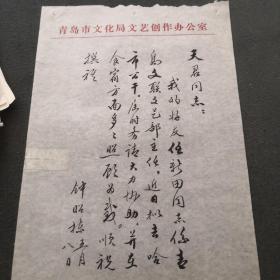 青岛市文化局文艺创作办公室
天君同志：
我的好友任新田同志系青
岛文联文艺部主任，近日拟去哈
市公干，届时务请大力协助，并在
食宿方面多多照顾为感。顺祝
撰祺
钟昭 五月
八日